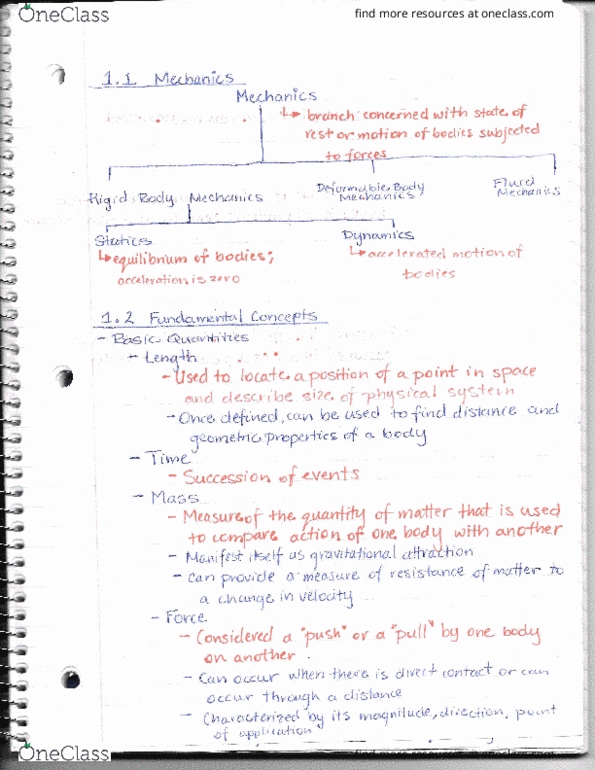 OneClass
find more resources at oneclass.com
1.1 Mechanics
Mechanics
↳ branch concerned with state of
rest or motion of bodies subjected
to forces
Rigid Body Mechanics
Deformable Body
Mechanics
Fluid
Mechanics
Statics
↳ equilibrium of bodies;
acceleration is zero
Dynamics
↳ accelerated motion of
bodies
1.2 Fundamental Concepts
- Basic Quantities
- Length
- Used to locate a position of a point in space
and describe size of physical system
- Once defined, can be used to find distance and
geometric properties of a body
- Time
- Succession of events
- Mass
- Measure of the quantity of matter that is used
to compare action of one body with another
- Manifest itself as gravitational attraction
- can provide a measure of resistance of matter to
a change in velocity
- Force
- Considered a "push" or a "pull" by one body
on another.
- Can occur when there is direct contact or can
occur through a distance
- Characterized by its magnitude, direction, point
of application
OneClass
find more resources at oneclass.com